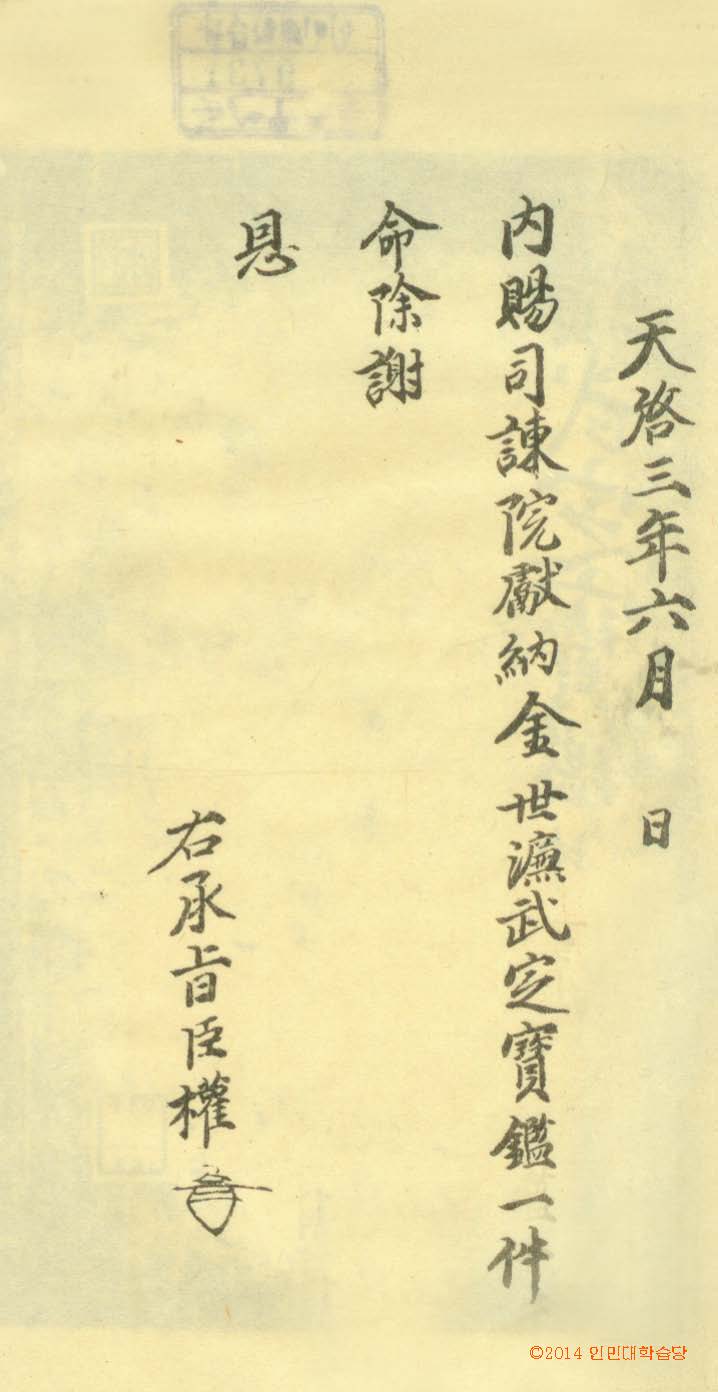 天啓三年六月 日
内賜司諫院獻納金世濂武定寶鑑一件
命除謝
恩
右承旨臣權
©2014 인민대학습당